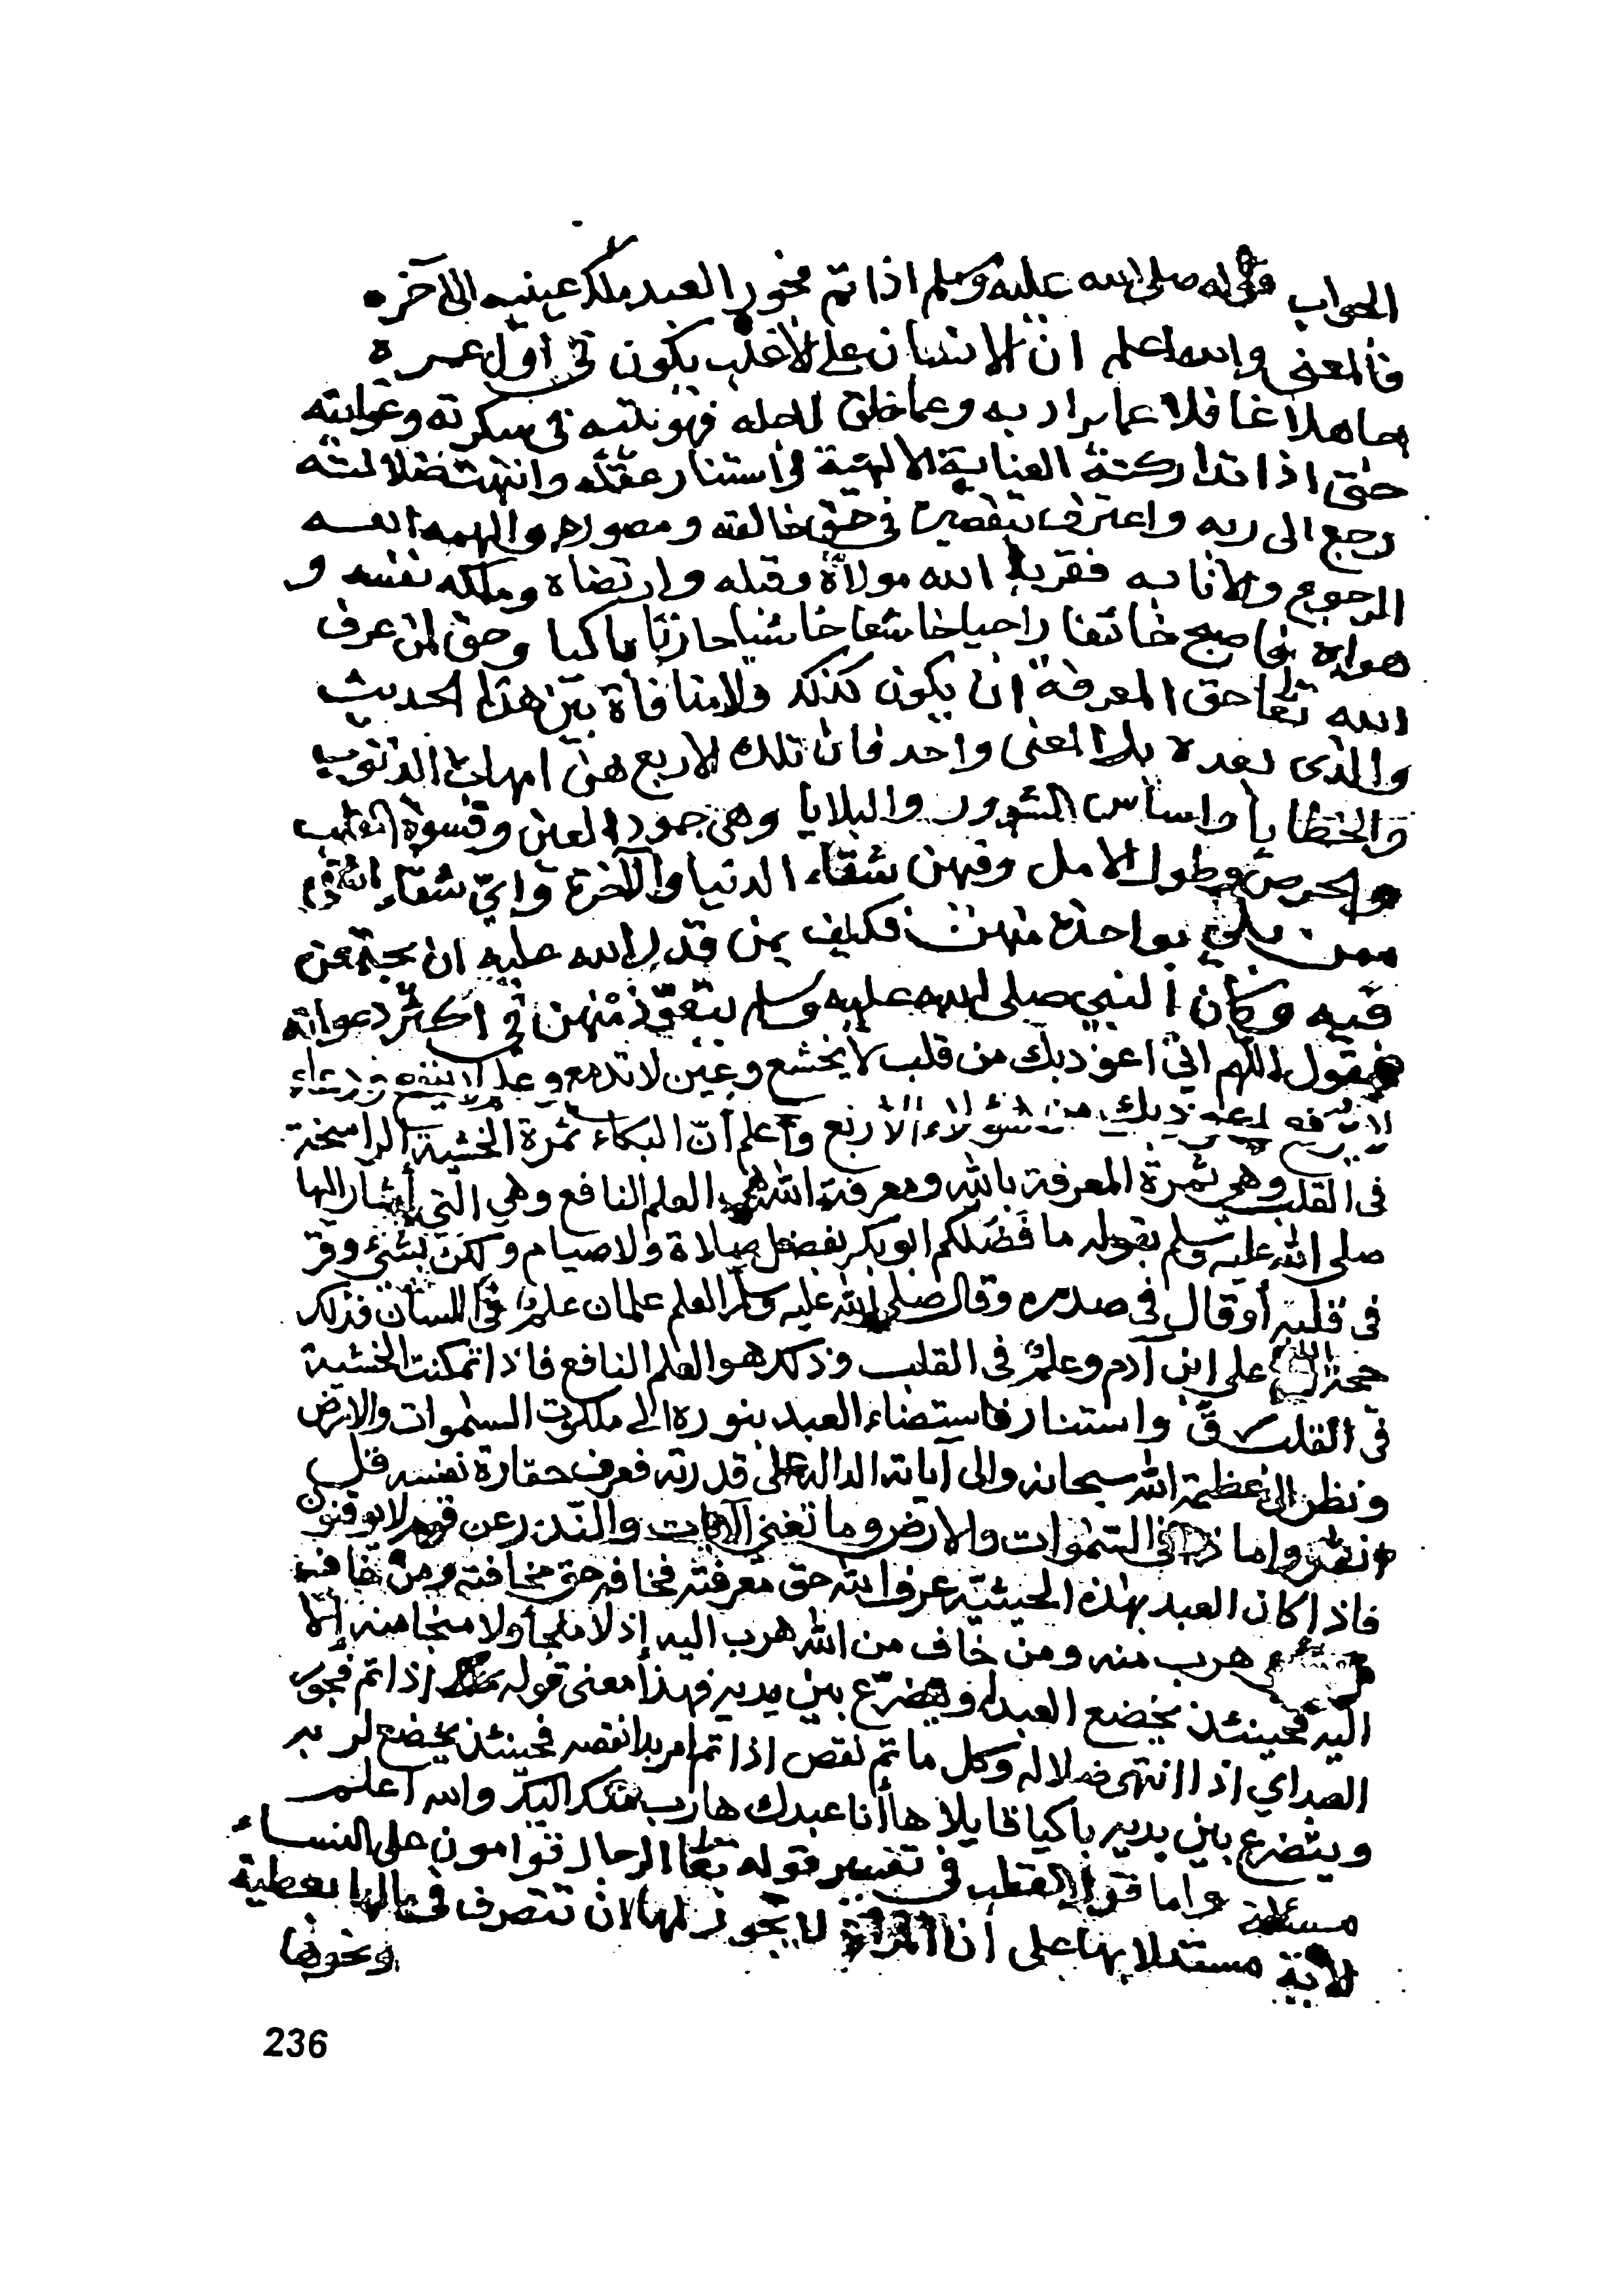 الجواب قوله صلى الله عليه وسلم اذا تم فجور العبد ملك عينيه الى آخره
فالمعنى والله اعلم ان الانسان على الاغلب يكون في اول عمره
جاهلا غافلا عما يراد به وعما خلق لاجله فهو يتيه في سكرته وغوايته
حتى اذا تداركته العناية الالهية واستنار عقله وانتهت ضلالته
رجع الى ربه واعترف بتقصيره في حق خالقه ومصوره والهمه الله
الرجوع والانابه فقربه الله مولاه وقبله وارتضاه وملكه نفسه و
هواه فاصبح خائفا راجيا خاشعا خاشيا حازنا باكيا وحق لمن عرف
الله تعالى حق المعرفة ان يكون كذلك ولا منافاة بين هذا الحديث
والذي بعده بل المعنى واحد فان تلك الاربع هن امهات الذنوب
والخطايا واساس الشرور والبلايا وهي جمود العين وقسوة القلب
والحرص وطول الامل وفهن شقاء الدنيا والآخرة واي شقاء
ممن بلي بواحدة منهن فكيف بمن قدر الله عليه ان يجتمعن
فيه وكان النبي صلى الله عليه وسلم يتعوذ منهن في اكثر دعواته
فيقول اللهم اني اعوذ بك من قلب لا يخشع وعين لا تدمع وعلم لا ينفع ودعاء
لا يرفع اعوذ بك من هؤلاء الأربع واعلم أن البكاء ثمرة الخشية الراسخة
في القلب وهي ثمرة المعرفة بالله ومعرفة الله هي العلم النافع وهي التي أشار إليها
صلى الله عليه وسلم بقوله ما فضلكم ابو بكر بفضل صلاة ولا صيام ولكن بشيء وقر
في قلبه أو قال في صدره وقال صلى الله عليه وسلم العلم علمان علم في اللسان فذلك
حجة الله على ابن آدم وعلم في القلب وذلك هو العلم النافع فاذا تمكنت الخشية
في القلب رق واستنار فاستضاء العبد بنوره الى ملكوت السموات والارض
ونظر الى عظمة الله سبحانه والى آياته الدالة على قدرته فعرف حقارة نفسه قل
انظروا ماذا في السموات والارض وما تغني الآيات والنذر عن قوم لا يؤمنون
فاذا كان العبد بهذه الحيثية عرف الله حق معرفته فخافه حق مخافته ومن خاف
هرب منه ومن خاف من الله هرب اليه إذ لا ملجأ ولا منجا منه إلا
اليه فحينئذ يخضع العبد ويتضرع بين يديه فهذا معنى قوله اذا تم فجور
العبد اي اذا انتهى ضلاله وكل ما تم نقص اذا تم امر بدا نقصه فحينئذ يخضع لربه
ويتضرع بين يديه باكيا قايلا ها أنا عبدك هارب منك اليك والله اعلم
مسئلة واما قول القطب في تفسير قوله تعالى الرجال قوامون على النساء
الاية مستدلا بها على أن المرأة لا يجوز لها ان تتصرف في مالها بعطية
ونحوها
236